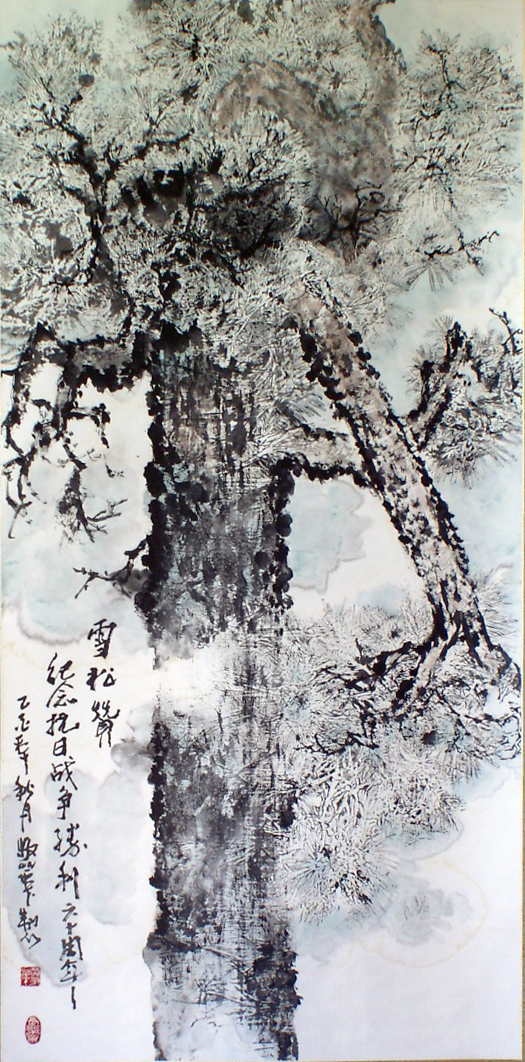 雪松赞
纪念抗日战争勝利六十周年
乙酉年秋月